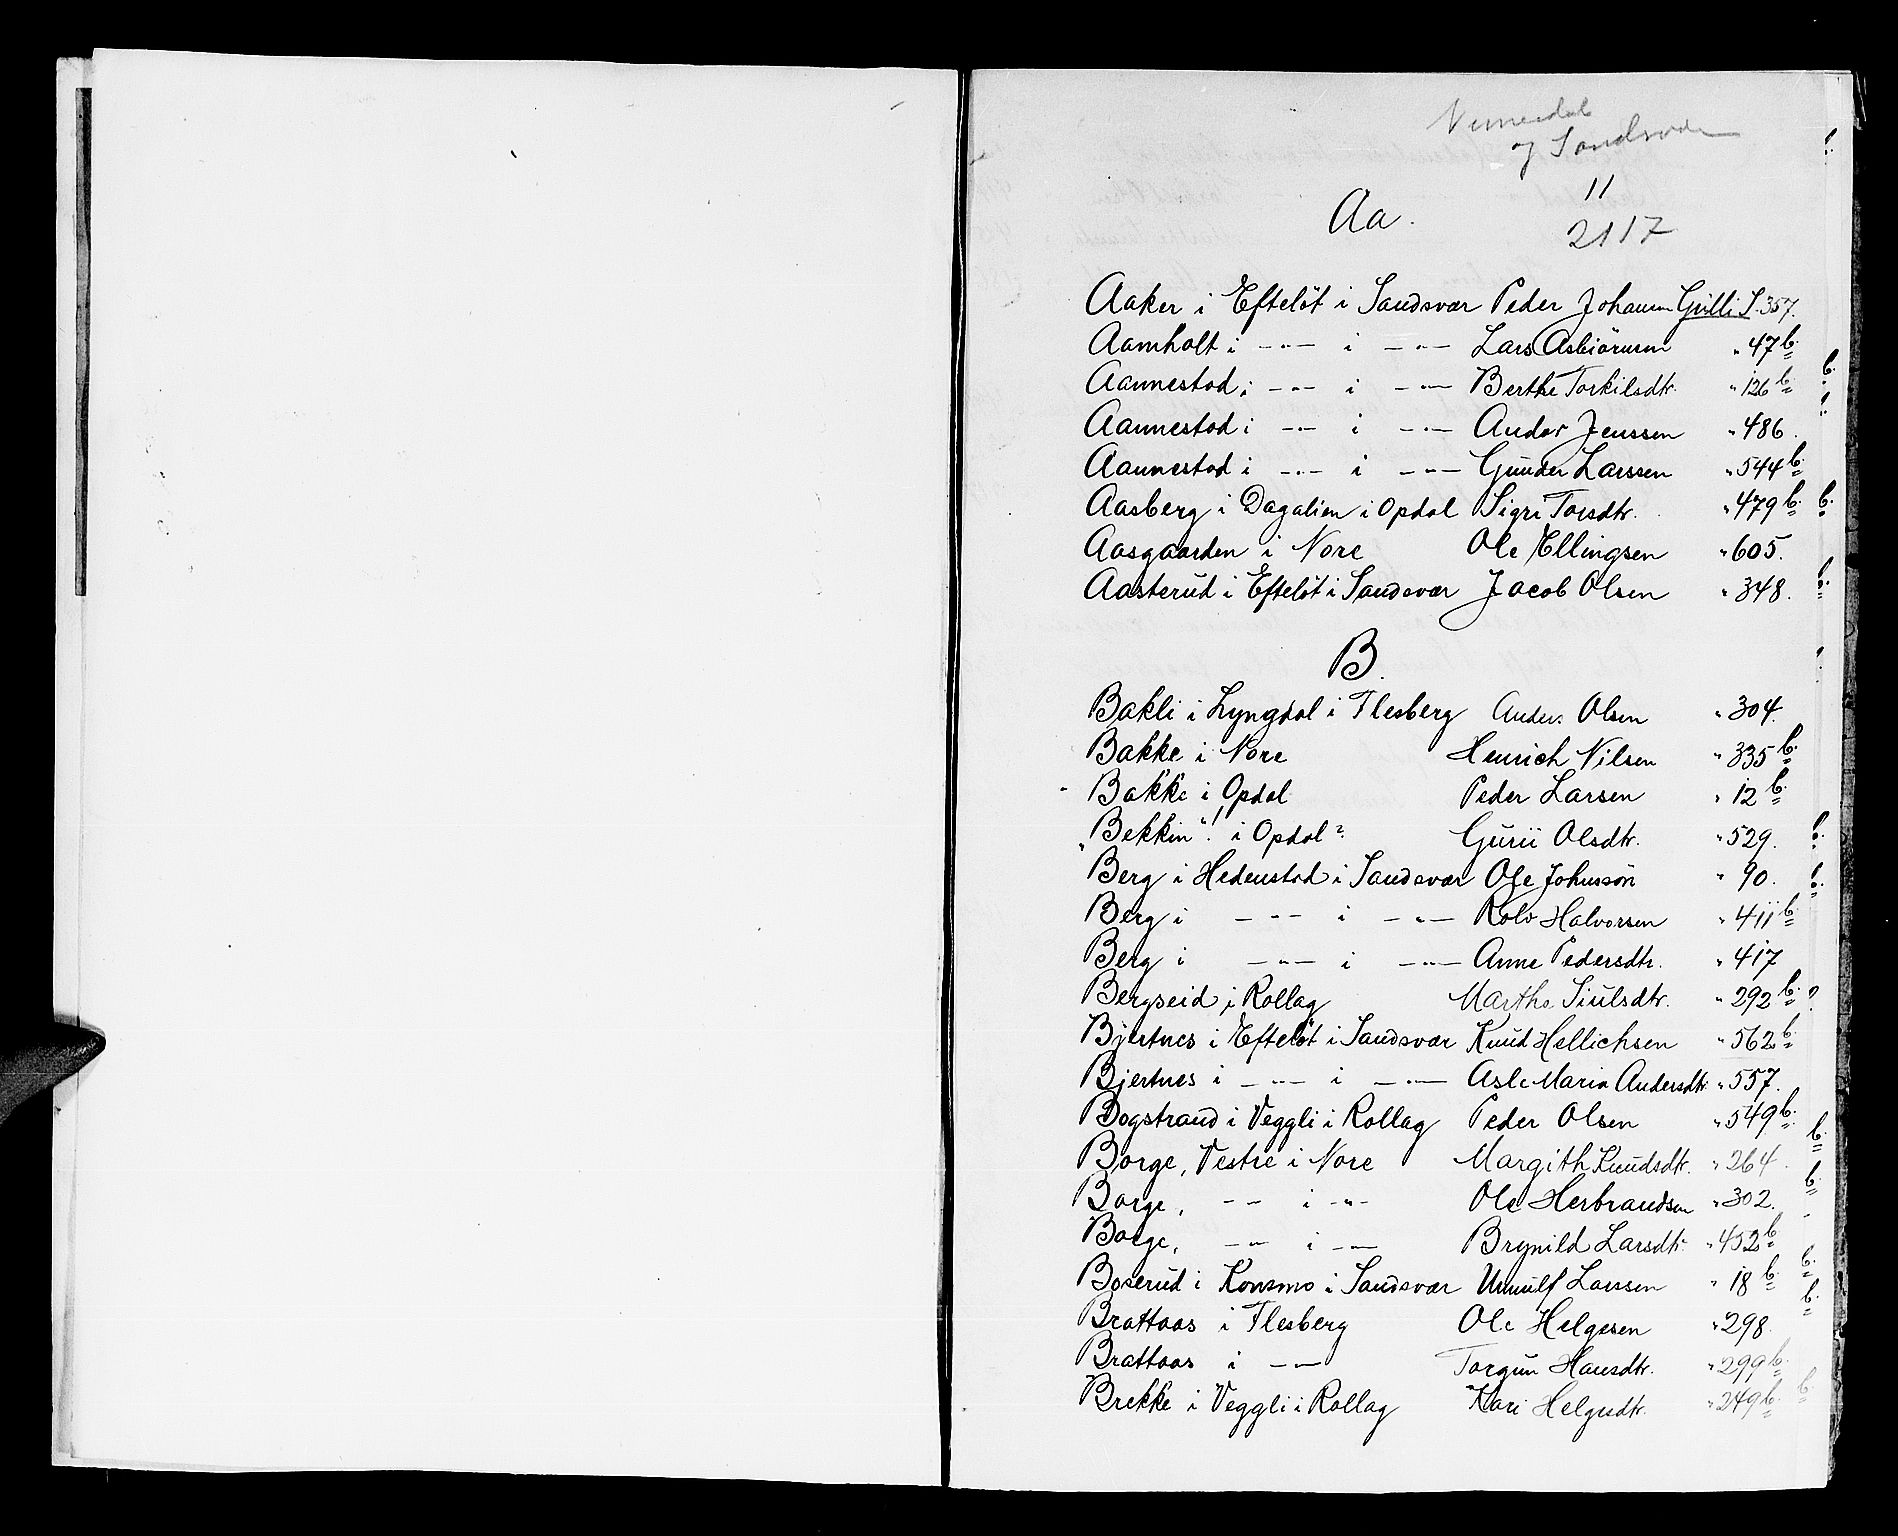 Numedal
og Sandsvær
11
Aa.
2117
Aaker i Efteløt i Sandsvær Peder Johansen Grilli S. 357.
Aamholt i -"- i -"- Lars Asbiörnsen " 47 b.
Aannestad i -"- i -"- Berthe Torkilsdtr. " 126 b.
Aannestad i -"- i -"- Andor Jenssen " 486.
Aannestad i -"- i -"- Gunder Larssen " 544 b.
Aasberg i Dagalien i Opdal Sigri Torsdtr. " 479 b.
Aasgaarden i Nore Ole Ellingsen " 605.
Aasterud i Efteløt i Sandsvær Jacob Olsen " 348.
B.
Bakli i Lyngdal i Flesberg Anders Olsen " 304.
Bakke i Nore Henrich Nilsen " 335 b.
Bakke i Opdal Peder Larsen " 12 b.
"Bekkin"! i Opdal? Gurii Olsdtr. " 529.
Berg i Hedenstad i Sandsvær Ole Johnssön " 90.
Berg i -"- i -"- Rolv Halvorsen " 411 b.
Berg i -"- i -"- Anne Pedersdtr. " 417
Bergseid i Rollag Marthe Siulsdtr. " 292 b.
Bjertnes i Efteløt i Sandsvær Knud Hellichsen " 562 b.
Bjertnes i -"- i -"- Asle Maria Andersdtr. " 557.
Bogstrand i Veggli i Rollag Peder Olsen " 549 b.
Borge, Vestre i Nore Margith Knudsdtr. " 264.
Borge, -"- i -"- Ole Herbrandsen " 302.
Borge, -"- i -"- Brynild Larsdtr. " 452 b
Boserud i Konsmo i Sandsvær Unnulf Larssen " 18 b.
Brattaas i Flesberg Ole Helgesen " 298.
Brattaas i -"- Torgun Hansdtr. " 299 b.
Brekke i Veggli i Rollag Kari Helgesdtr. " 249 b.